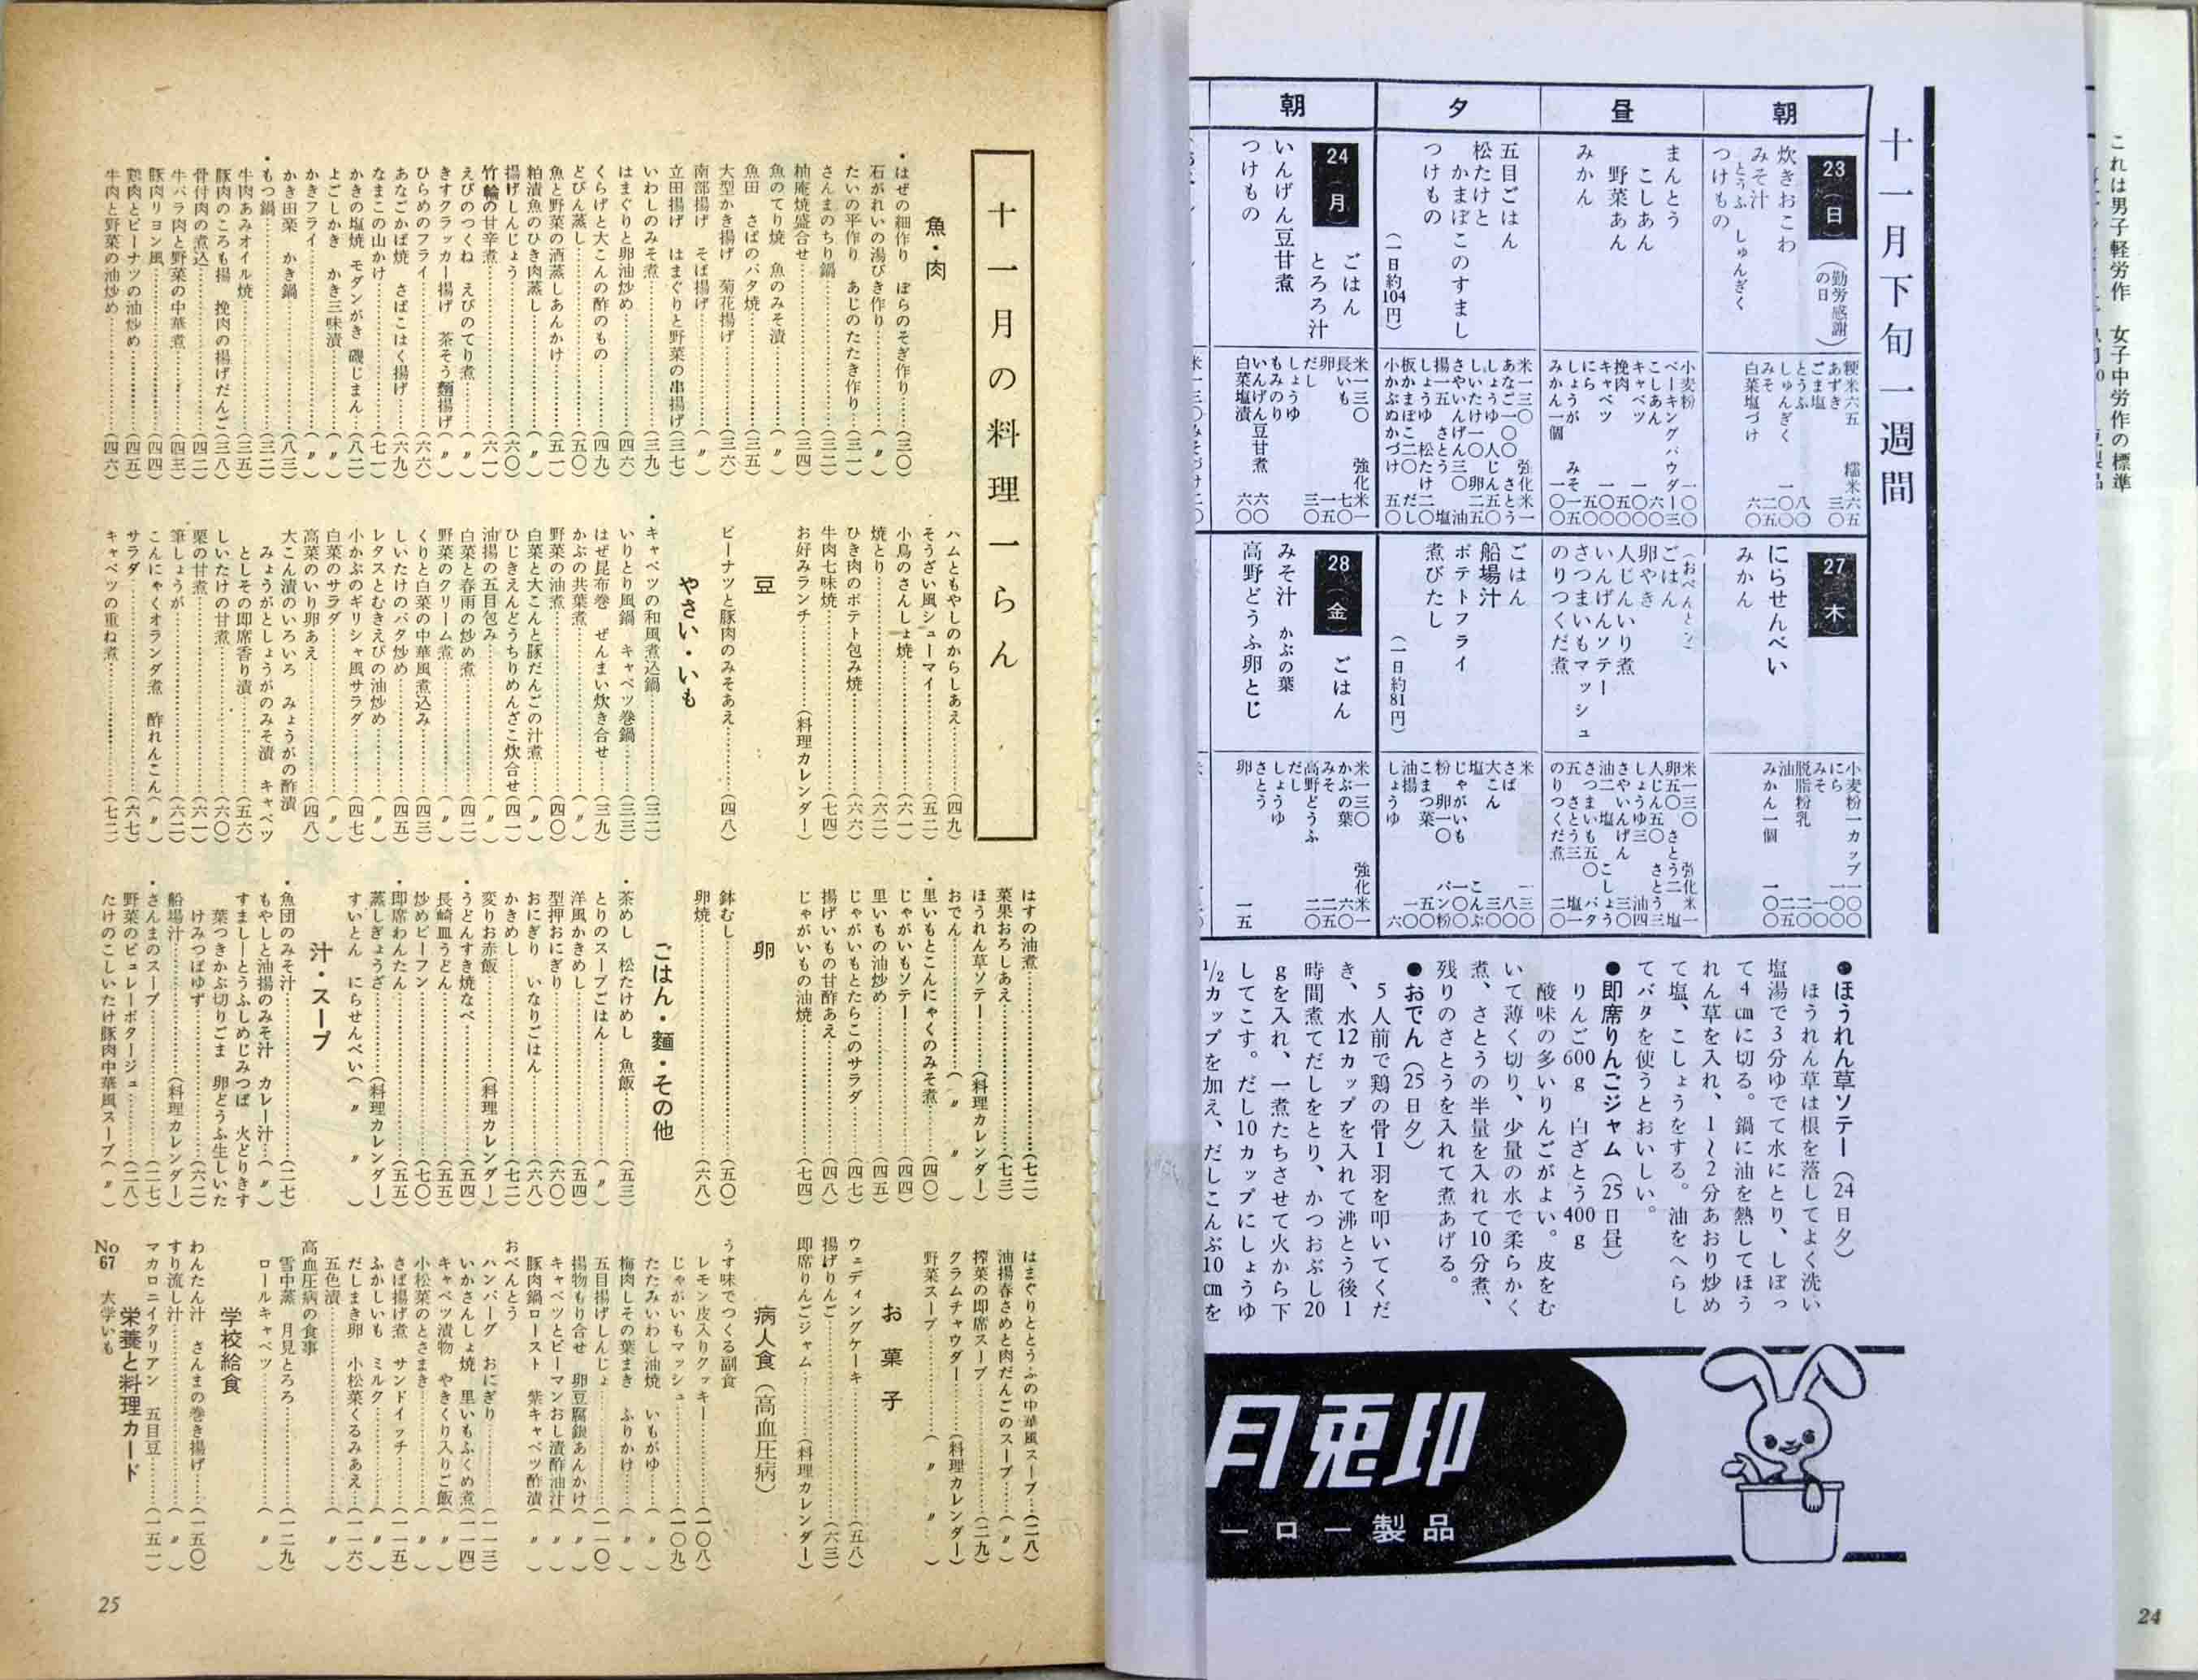 これは男子軽労作 女子中労作の標準
24
十一月下旬一週間
朝
23(日)
(勤労感謝の日)
炊きおこわ
みそ汁
とうふ しゅんぎく
つけもの
粳米六五 糯米六五
あずき 三〇
ごま塩
とうふ 八〇
しゅんぎく 一〇〇
みそ 二五
白菜塩づけ 六〇
昼
まんとう
こしあん
野菜あん
みかん
小麦粉 一〇〇
ベーキングパウダー 三
こしあん 六〇
キャベツ 五〇
挽肉 一〇
キャベツ 五〇
にら 一〇
しょうが みそ 一五
みかん一個 一〇〇
夕
五目ごはん
松たけと
かまぼこのすまし
つけもの
(一日約104円)
朝
24(月)
ごはん
とろろ汁
いんげん豆甘煮
つけもの
米一三〇 強化米一
長いも 七〇
卵 一五
だし
しょうゆ
もみのり
いんげん豆甘煮 六〇
白菜塩漬 六〇
27(木)
にらせんべい
みかん
小麦粉一カップ 一一〇
にら
みそ
脱脂粉乳
油
みかん一個 一〇〇
(おべんとう)
ごはん
卵やき
人じんいり煮
いんげんソテー
さつまいもマッシュ
のりつくだ煮
ごはん
船場汁
ポテトフライ
煮びたし
(一日約81円)
米
さば
大こん
塩
じゃがいも
粉 卵一〇
こまつ菜
油揚
しょうゆ
28(金)
ごはん
みそ汁 かぶの葉
高野どうふ卵とじ
米一三〇 強化米一
かぶの葉
みそ
高野どうふ
だし
しょうゆ
さとう
卵
●ほうれん草ソテー(24日夕)
ほうれん草は根を落してよく洗い
塩湯で3分ゆでて水にとり、しぼっ
て4cmに切る。鍋に油を熱してほう
れん草を入れ、1〜2分あおり炒め
て塩、こしょうをする。油をへらし
てバタを使うとおいしい。
●即席りんごジャム(25日昼)
りんご600g 白ざとう400g
酸味の多いりんごがよい。皮をむ
いて薄く切り、少量の水で柔らかく
煮、さとうの半量を入れて10分煮、
残りのさとうを入れて煮あげる。
●おでん(25日夕)
5人前で鶏の骨1羽を叩いてくだ
き、水12カップを入れて沸とう後1
時間煮てだしをとり、かつおぶし20
gを入れ、一煮たちさせて火から下
してこす。だし10カップにしょうゆ
1/2カップを加え、だしこんぶ10cmを
月兎印
ーロー製品
十一月の料理一らん
魚・肉
・はぜの細作り ぼらのそぎ作り……(三〇)
石がれいの湯びき作り……(〃)
たいの平作り あじのたたき作り…(三一)
さんまのちり鍋……(三二)
柚庵焼盛合せ……(三四)
魚のてり焼 魚のみそ漬
魚田 さばのバタ焼……(三五)
大型かき揚げ 菊花揚げ……(三六)
南部揚げ そば揚げ……(〃)
立田揚げ はまぐりと野菜の串揚げ(三七)
いわしのみそ煮……(三九)
はまぐりと卵油炒め……(四六)
くらげと大こんの酢のもの……(四九)
どびん蒸し……(五〇)
魚と野菜の酒蒸しあんかけ……(五一)
粕漬魚のひき肉蒸し……(〃)
揚げしんじょう……(六〇)
竹輪の甘辛煮……(六一)
えびのつくね えびのてり煮……(〃)
きすクラッカー揚げ 茶そう麺揚げ(〃)
ひらめのフライ……(六六)
あなごかば焼 さばこはく揚げ……(六九)
なまこの山かけ……(七一)
かきの塩焼 モダンがき 磯じまん…(八二)
よごしかき かき三味漬……(〃)
かきフライ……(〃)
かき田楽 かき鍋……(八三)
・もつ鍋……(三二)
牛肉あみオイル焼……(三五)
豚肉のころも揚 挽肉の揚げだんご(三八)
骨付肉の煮込……(四二)
牛バラ肉と野菜の中華煮……(四三)
豚肉リヨン風……(四四)
鶏肉とピーナツの油炒め……(四五)
牛肉と野菜の油炒め……(四六)
ハムともやしのからしあえ……(四九)
そうざい風シューマイ……(五二)
小鳥のさんしょ焼……(六一)
焼とり……(六二)
ひき肉のポテト包み焼……(六六)
牛肉七味焼……(七四)
お好みランチ……(料理カレンダー)
豆
ピーナツと豚肉のみそあえ……(四八)
やさい・いも
・キャベツの和風煮込鍋……(三二)
いりとり風鍋 キャベツ巻鍋……(三三)
はぜ昆布巻 ぜんまい炊き合せ……(三九)
かぶの共葉煮……(〃)
野菜の油煮……(四〇)
白菜と大こんと豚だんごの汁煮……(〃)
ひじきえんどうちりめんざこ炊合せ(四一)
油揚の五目包み……(〃)
白菜と春雨の炒め煮……(四二)
野菜のクリーム煮……(〃)
くりと白菜の中華風煮込み……(四三)
しいたけのバタ炒め……(四五)
レタスとむきえびの油炒め……(〃)
小かぶのギリシャ風サラダ……(四七)
白菜のサラダ……(〃)
高菜のいり卵あえ……(四八)
大こん漬のいろいろ みょうがの酢漬
みょうがとしょうがのみそ漬 キャベツ
としその即席香り漬……(五六)
しいたけの甘煮……(六〇)
栗の甘煮……(六一)
筆しょうが……(六二)
こんにゃくオランダ煮 酢れんこん(〃)
サラダ……(六七)
キャベツの重ね煮……(七二)
はすの油煮……(七二)
菜果おろしあえ……(七三)
ほうれん草ソテー……(料理カレンダー)
おでん……(〃)
・里いもとこんにゃくのみそ煮……(四〇)
じゃがいもソテー……(四四)
里いもの油炒め……(四五)
じゃがいもとたらこのサラダ……(四七)
揚げいもの甘酢あえ……(四八)
じゃがいもの油焼……(七四)
卵
鉢むし……(五〇)
卵焼……(六八)
ごはん・麺・その他
・茶めし 松たけめし 魚飯……(五三)
とりのスープごはん……(〃)
洋風かきめし……(五四)
型押おにぎり……(六〇)
おにぎり いなりごはん……(六八)
かきめし……(七二)
変りお赤飯……(料理カレンダー)
・うどんすき焼なべ……(五四)
長崎皿うどん……(五五)
炒めビーフン……(七〇)
・即席わんたん……(五五)
蒸しぎょうざ……(料理カレンダー)
すいとん にらせんべい(〃)
汁・スープ
・魚団のみそ汁……(二七)
もやしと油揚のみそ汁 カレー汁…(〃)
すまし―とうふしめじみつば 火どりきす
葉つきかぶ切りごま 卵どうふ生しいた
けみつばゆず……(六二)
船場汁……(料理カレンダー)
・さんまのスープ……(二七)
野菜のピュレーポタージュ……(二八)
たけのこしいたけ豚肉中華風スープ(〃)
はまぐりととうふの中華風スープ…(二八)
油揚春さめと肉だんごのスープ……(〃)
搾菜の即席スープ……(二九)
クラムチャウダー……(料理カレンダー)
野菜スープ……(〃)
お菓子
ウェディングケーキ……(五八)
揚げりんご……(六三)
即席りんごジャム……(料理カレンダー)
病人食(高血圧病)
うす味でつくる副食
レモン皮入りクッキー……(一〇八)
じゃがいもマッシュ……(一〇九)
たたみいわし油焼 いもがゆ……(〃)
梅肉しその葉まき ふりかけ……(〃)
五目揚げしんじょ……(一一〇)
揚物もり合せ 卵豆腐銀あんかけ(〃)
キャベツとピーマンおし漬酢油汁(〃)
豚肉鍋ロースト 紫キャベツ酢漬(〃)
おべんとう
ハンバーグ おにぎり……(一一三)
いかさんしょ焼 里いもふくめ煮(一一四)
キャベツ漬物 やきくり入りご飯(〃)
小松菜のとさまき……(〃)
さば揚げ煮 サンドイッチ……(一一五)
ふかしいも ミルク……(〃)
だしまき卵 小松菜くるみあえ…(一一六)
五色漬……(〃)
高血圧病の食事
雪中蒸 月見とろろ……(一二九)
ロールキャベツ……(〃)
学校給食
わんたん汁 さんまの巻き揚げ……(一五〇)
すり流し汁……(〃)
マカロニイタリアン 五目豆……(一五一)
栄養と料理カード
No67 大学いも
25